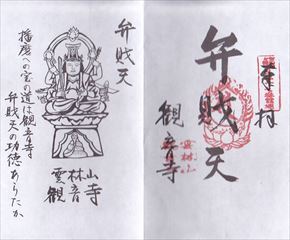 奉拝
弁戝天
雲林山
観音寺
弁戝天
播磨への宝の道は観音寺
弁戝天の功徳あらたか
雲林山
観音寺